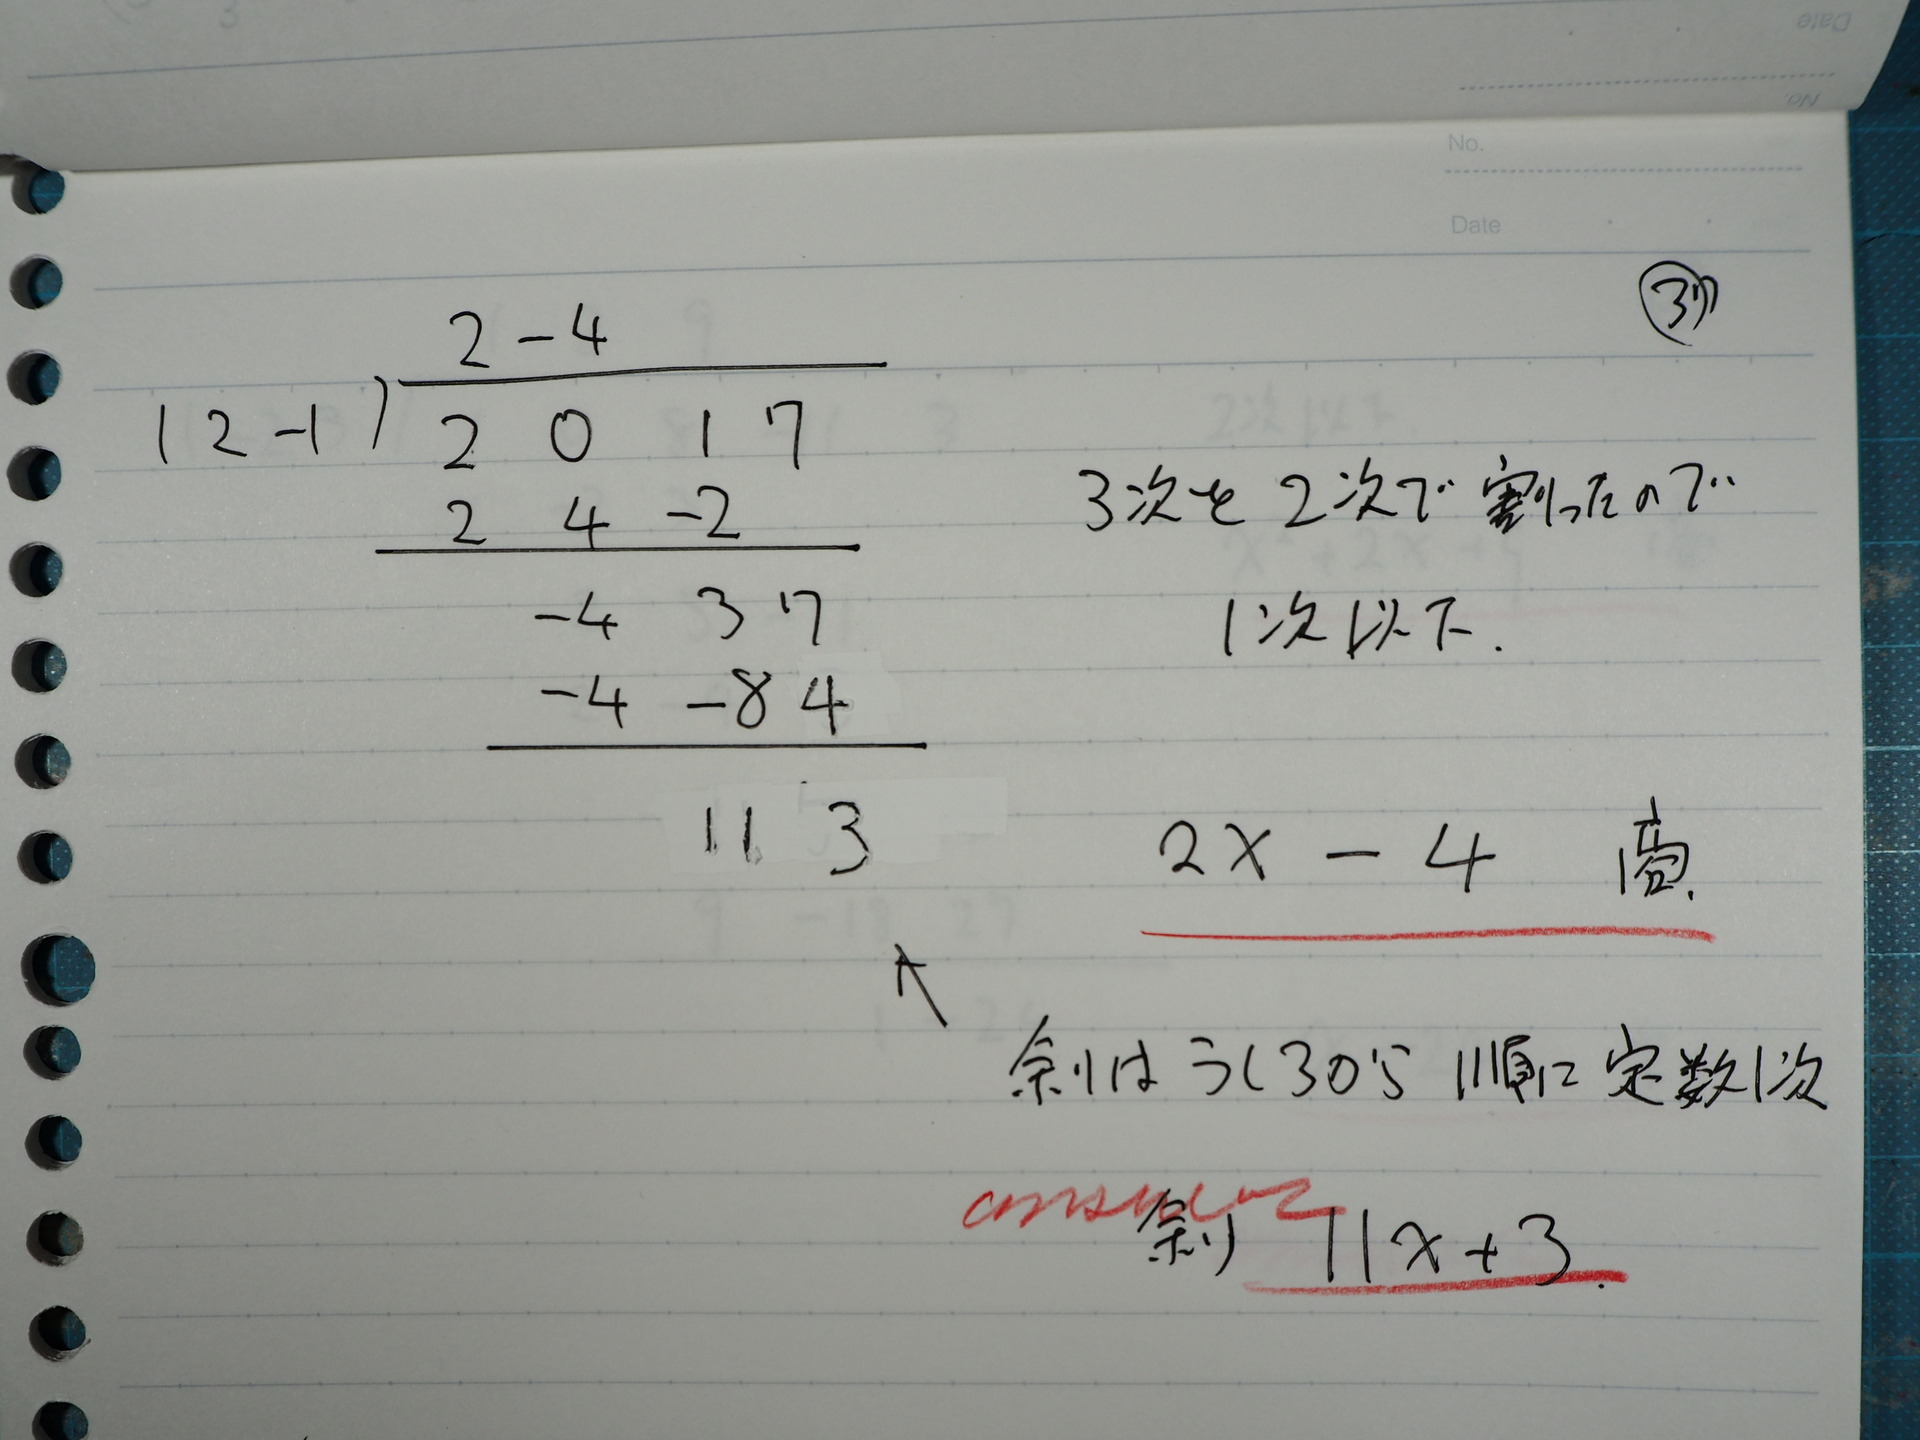 Date
No.
No.
Date
2 -4
1 2 -1 ) 2 0 1 7
2 4 -2
-4 3 7
-4 -8 4
11 3
3次を2次で割ったので
1次以下.
2x - 4 商.
余りはうしろから順に定数1次
answer
余り 11x+3.